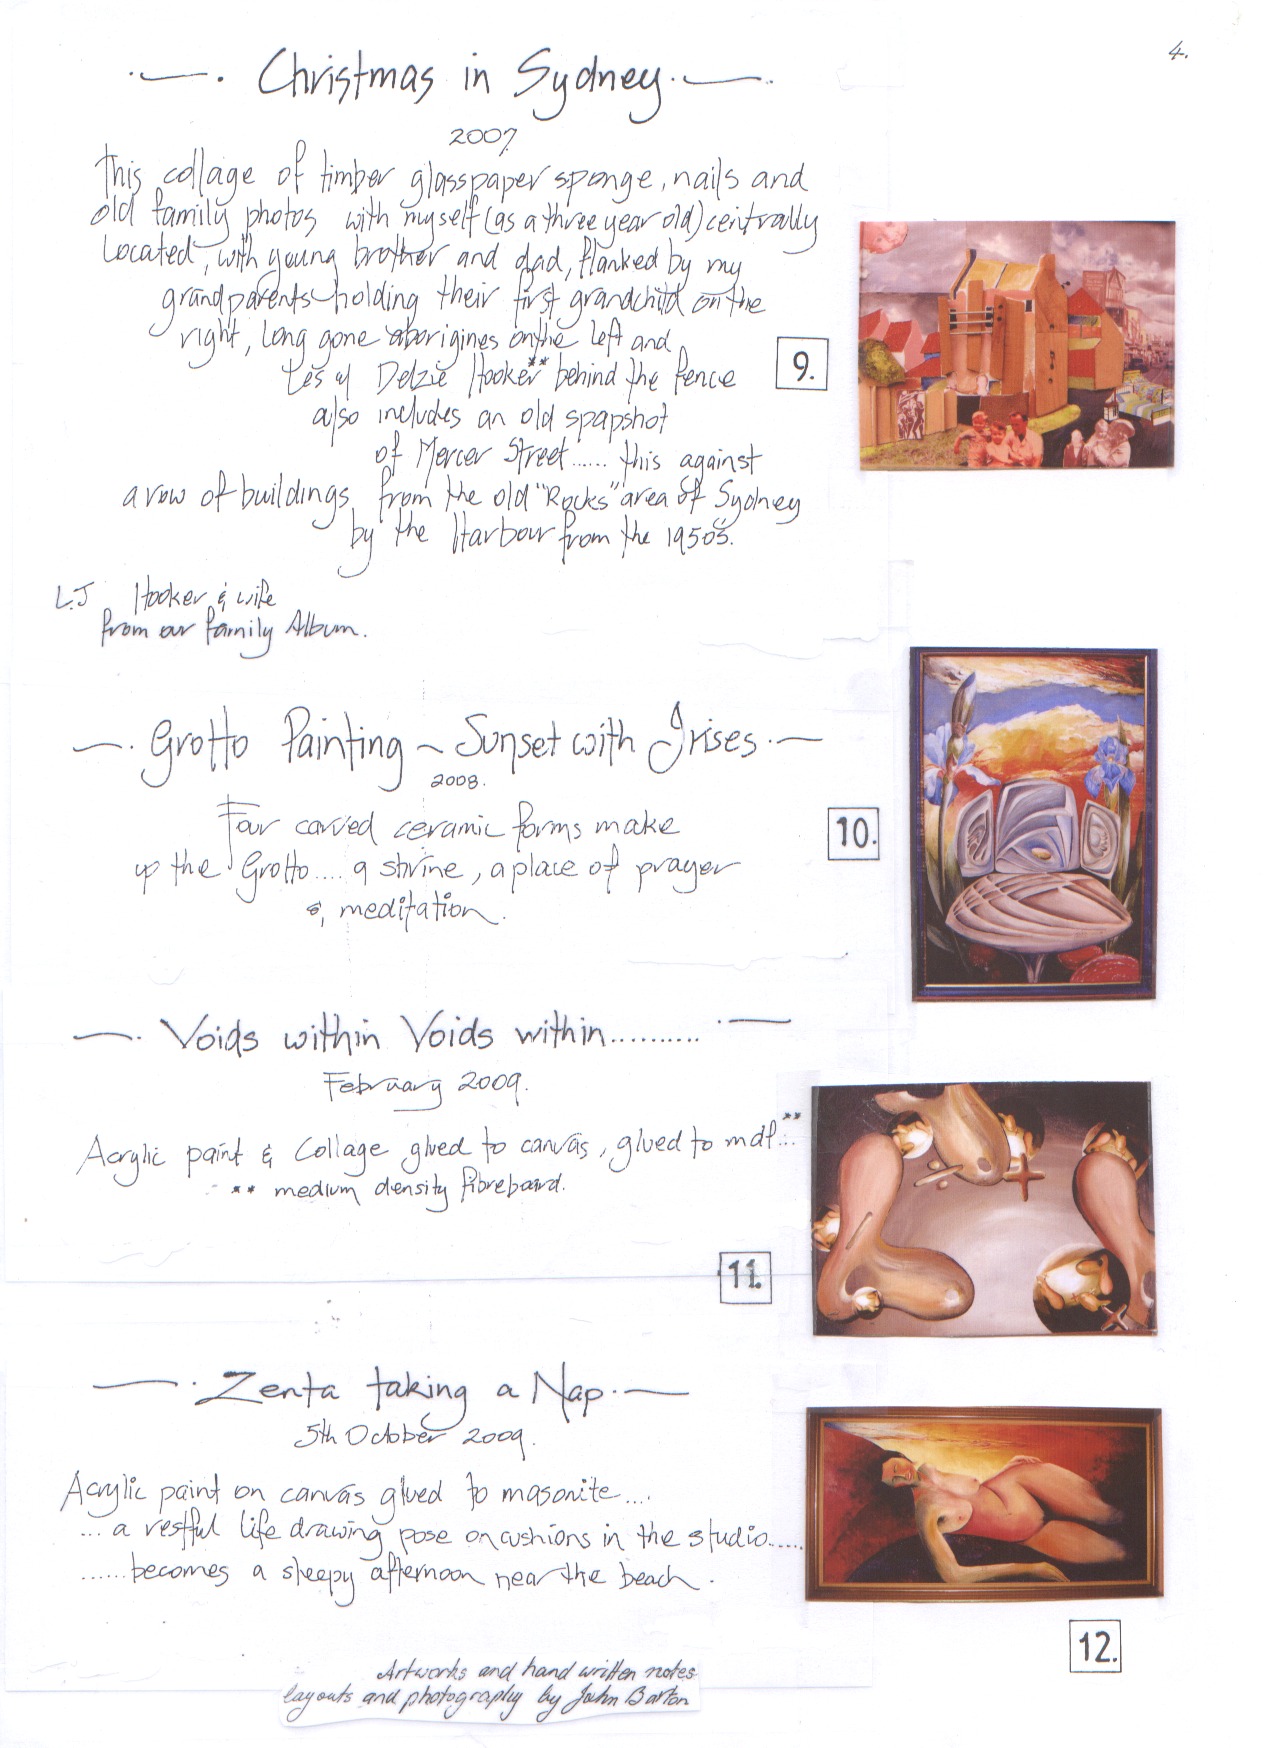 4.
Christmas in Sydney
2007.
This collage of timber glasspaper sponge, nails and
old family photos with myself (as a three year old) centrally
Located, with young brother and dad, flanked by my
grandparents holding their first grandchild on the
right, long gone aborigines on the left and
Les & Delzie Hooker** behind the fence
also includes an old spapshot
of Mercer Street...... this against
a row of buildings from the old "Rocks" area of Sydney
by the Harbour from the 1950s.
9.
L.J Hooker & wife
from our family Album.
Grotto Painting ~ Sunset with Irises
2008.
Four carved ceramic forms make
up the Grotto.... a shrine, a place of prayer
& meditation.
10.
Voids within Voids within..........
February 2009.
Acrylic paint & Collage glued to canvas, glued to mdf...**
** medium density fibreboard.
11.
Zenta taking a Nap
5th October 2009.
Acrylic paint on canvas glued to masonite....
... a restful life drawing pose on cushions in the studio.....
......becomes a sleepy afternoon near the beach.
12.
Artworks and hand written notes
layouts and photography by John Barton